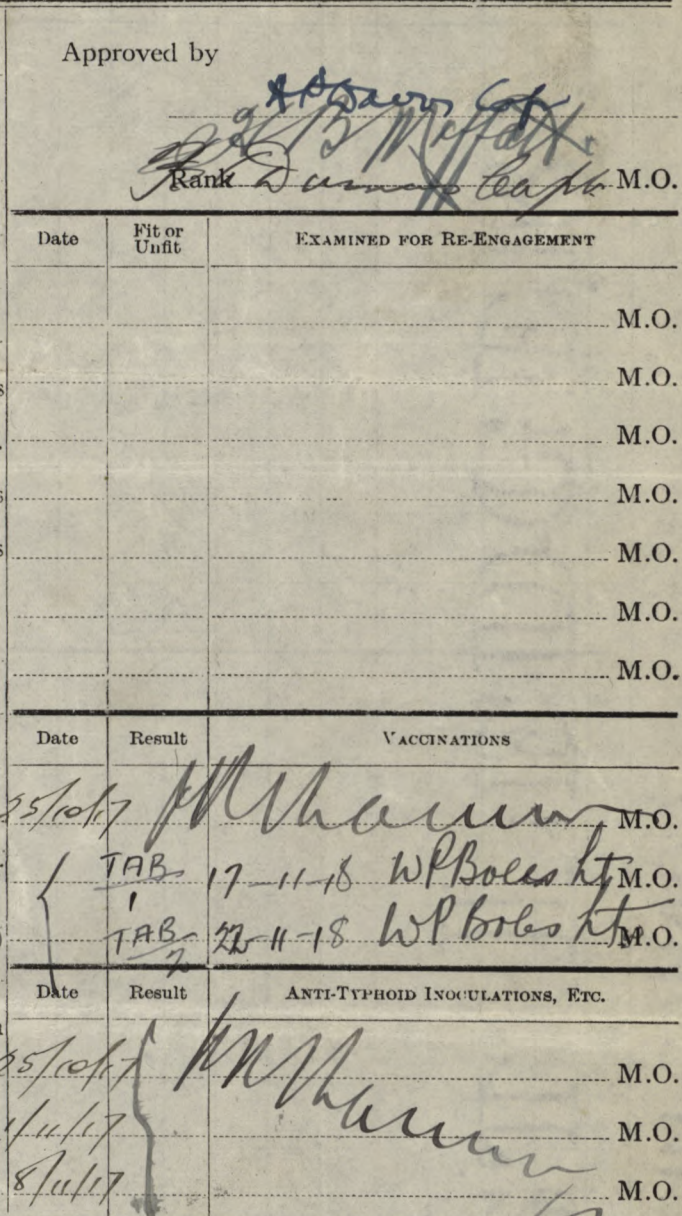 Approved by
Capt
H B Moffatt
Rank Capt. M.O.
Date Fit or Unfit EXAMINED FOR RE-ENGAGEMENT
M.O.
M.O.
M.O.
M.O.
M.O.
M.O.
M.O.
Date Result VACCINATIONS
25/10/17 M.O.
TAB 1 17-11-18 WP Boles Lt M.O.
TAB 2 22-11-18 WP Boles Lt M.O.
Date Result ANTI-TYPHOID INOCULATIONS, ETC.
25/10/17 M.O.
1/11/17 M.O.
8/11/17 M.O.